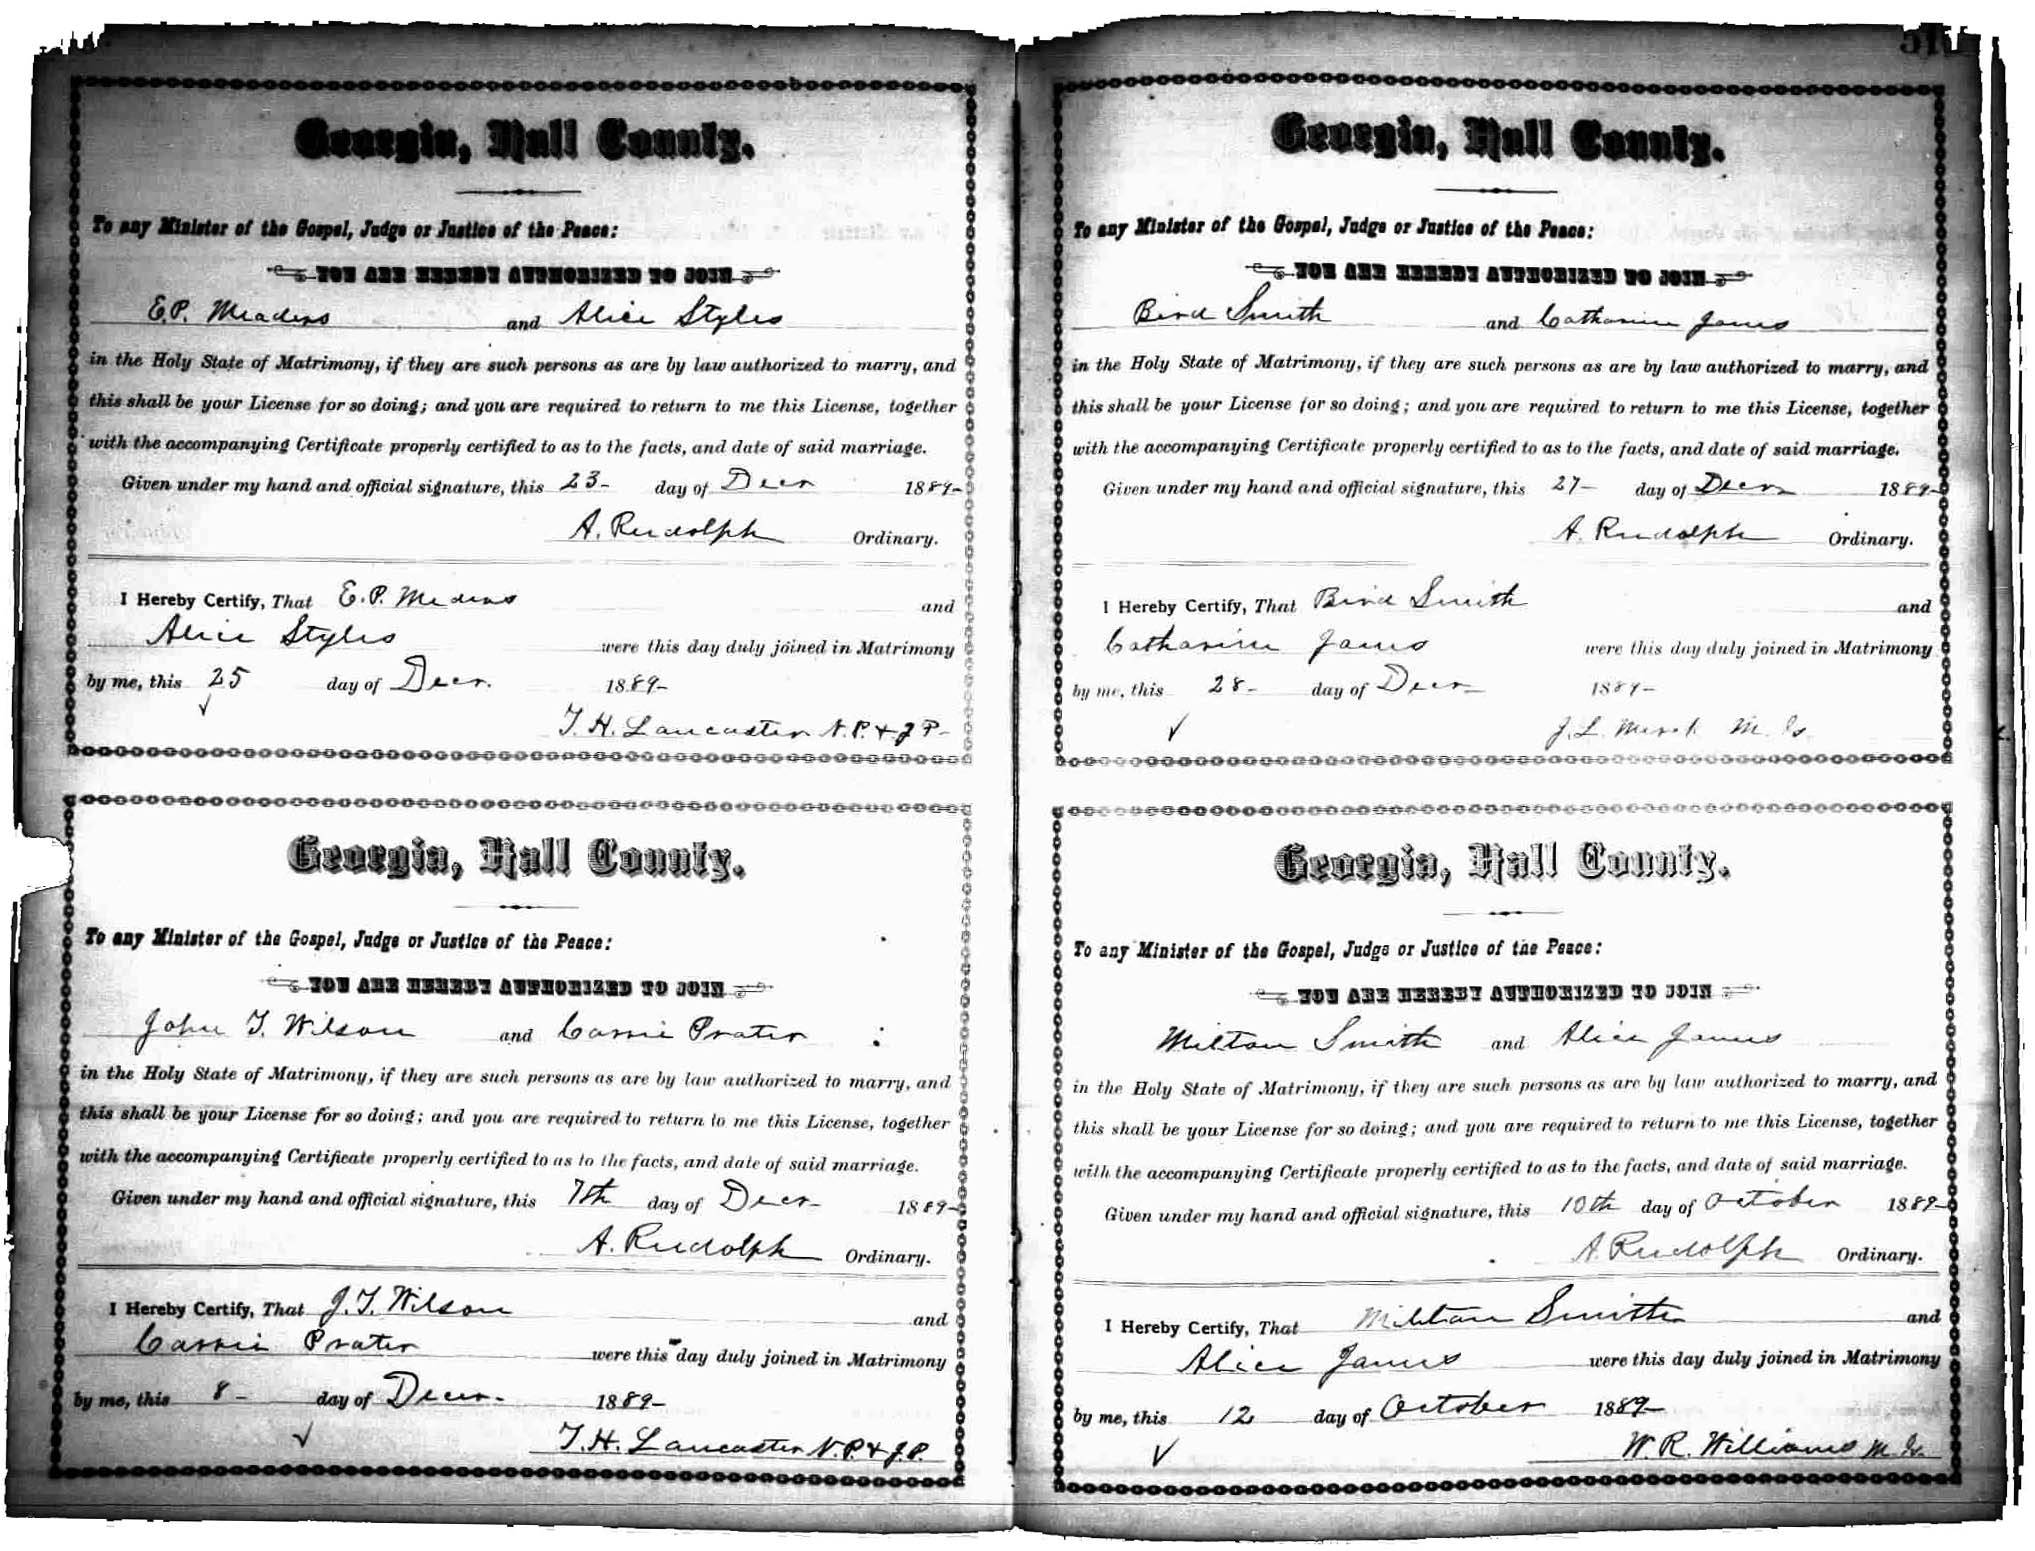 Georgia, Hall County.
To any Minister of the Gospel, Judge or Justice of the Peace:
YOU ARE HEREBY AUTHORIZED TO JOIN
E.P. Meaders and Alice Styles
in the Holy State of Matrimony, if they are such persons as are by law authorized to marry, and
this shall be your License for so doing; and you are required to return to me this License, together
with the accompanying Certificate properly certified to as to the facts, and date of said marriage.
Given under my hand and official signature, this 23- day of Decr 1889-
A. Rudolph Ordinary.
I Hereby Certify, That E.P. Meders and
Alice Styles were this day duly joined in Matrimony
by me, this 25 day of Decr. 1889-
T. H. Lancaster N.P. & J P-
Georgia, Hall County.
To any Minister of the Gospel, Judge or Justice of the Peace:
YOU ARE HEREBY AUTHORIZED TO JOIN
John T. Wilson and Carrie Prater
in the Holy State of Matrimony, if they are such persons as are by law authorized to marry, and
this shall be your License for so doing; and you are required to return to me this License, together
with the accompanying Certificate properly certified to as to the facts, and date of said marriage.
Given under my hand and official signature, this 7th day of Decr- 1889-
A. Rudolph Ordinary.
I Hereby Certify, That J.T. Wilson and
Carrie Prater were this day duly joined in Matrimony
by me, this 8- day of Decr- 1889-
T.H. Lancaster N.P. & J.P.
51
Georgia, Hall County.
To any Minister of the Gospel, Judge or Justice of the Peace:
YOU ARE HEREBY AUTHORIZED TO JOIN
Bird Smith and Catharine James
in the Holy State of Matrimony, if they are such persons as are by law authorized to marry, and
this shall be your License for so doing; and you are required to return to me this License, together
with the accompanying Certificate properly certified to as to the facts, and date of said marriage.
Given under my hand and official signature, this 27- day of Decr- 1889-
A. Rudolph Ordinary.
I Hereby Certify, That Bird Smith and
Catharine James were this day duly joined in Matrimony
by me, this 28- day of Decr- 1889-
J. L. M. G.
Georgia, Hall County.
To any Minister of the Gospel, Judge or Justice of the Peace:
YOU ARE HEREBY AUTHORIZED TO JOIN
Milton Smith and Alice James
in the Holy State of Matrimony, if they are such persons as are by law authorized to marry, and
this shall be your License for so doing; and you are required to return to me this License, together
with the accompanying Certificate properly certified to as to the facts, and date of said marriage.
Given under my hand and official signature, this 10th day of October 1889-
A. Rudolph Ordinary.
I Hereby Certify, That Milton Smith and
Alice James were this day duly joined in Matrimony
by me, this 12 day of October 1889-
W. R. Williams M. G.